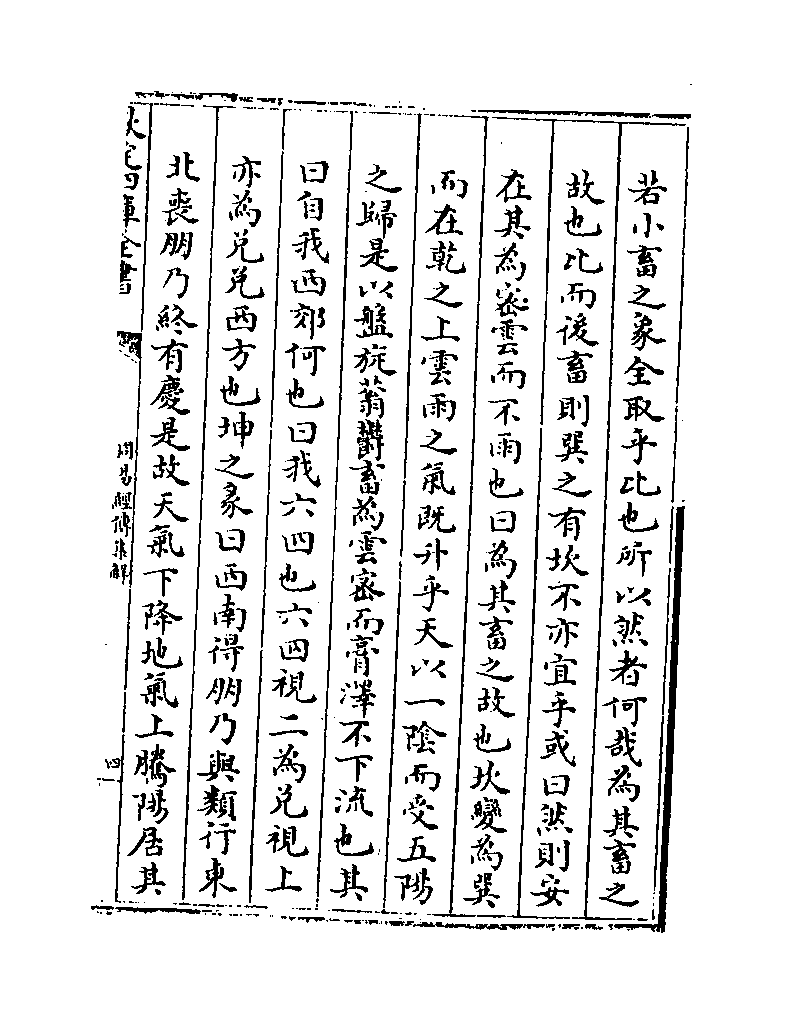 若小畜之象全取乎比也所以然者何哉為其畜之
故也比而後畜則巽之有坎不亦宜乎或曰然則安
在其為密雲而不雨也曰為其畜之故也坎變為巽
而在乾之上雲雨之氣既升乎天以一陰而受五陽
之歸是以盤旋蓊鬱畜為雲密而膏澤不下流也其
曰自我西郊何也曰我六四也六四視二為兌視上
亦為兌兌西方也坤之彖曰西南得朋乃與類行東
北喪朋乃終有慶是故天氣下降地氣上騰陽居其
欽定四庫全書
周易經傳集解
四